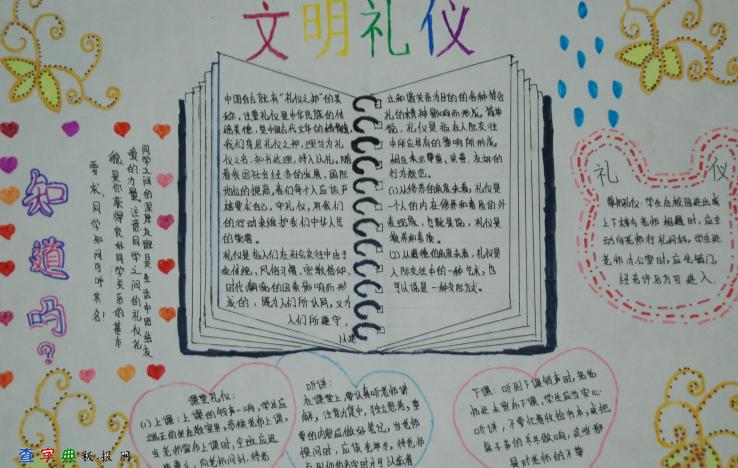 文明礼仪
中国自古就有“礼仪之邦”的美
称，注重礼仪是中华民族的传
统美德，是中国古代文件的
我们身居礼仪之邦，理当为礼
仪之名，知书达理，待人以礼，随
着我国社会经济的发展，国际
地位的提高，我们每个人应该严
格要求自己，守礼仪，用我们
的行动来维护我们中华人民
的荣誉。
礼仪是指人们在社会交往中由于
受传统，风俗习惯，宗教信仰，
时代潮流的因素影响而形
成的，既为人们所认同，又为
人们所遵守，
以建
立和谐关系为目的的各种符合
礼的精神
说，礼仪是指在人际交往
中所应具
相互表示尊重，
的行为规范。
(1)从修养的角度来看，礼仪是
一个人的内在修养和素质的外
表现，也就是说，礼仪是
教养和素质。
(2)从道德的角度来看，礼仪是
人际交往中的一种艺术，也
可以说是一种交际方式。
知道吗？
同学之间的深厚友谊是生活中团结友
爱的力量，注意同学之间的礼仪礼
貌，是你获得良好同学关系的基本
要求，同学知间可
礼仪
尊师礼仪：学生在校园进出或
上下楼与老师相遇时，应主
动向老师行礼问好，学生进
老师办公室时，应先敲门，
经允许后方可进入。
课堂礼仪：
(1)上课：上课的铃声一响，学生应
端正的坐在教室里，恭候老师上课，
当老师宣布上课时，全班应迅
向老师问好，待老
听讲：
在课堂上，要认真听老师讲
解，注意力集中，独立思考，重
要的内容应做好笔记，当老师
提问时，应该先举手，待老师
下课：听到下课铃声时，若老
师还未宣布下课，学生应当安心
听讲，不要忙着收拾书本，或把
桌子弄的乒乓作响，这些都
是对老师的不尊
查字典 板报网